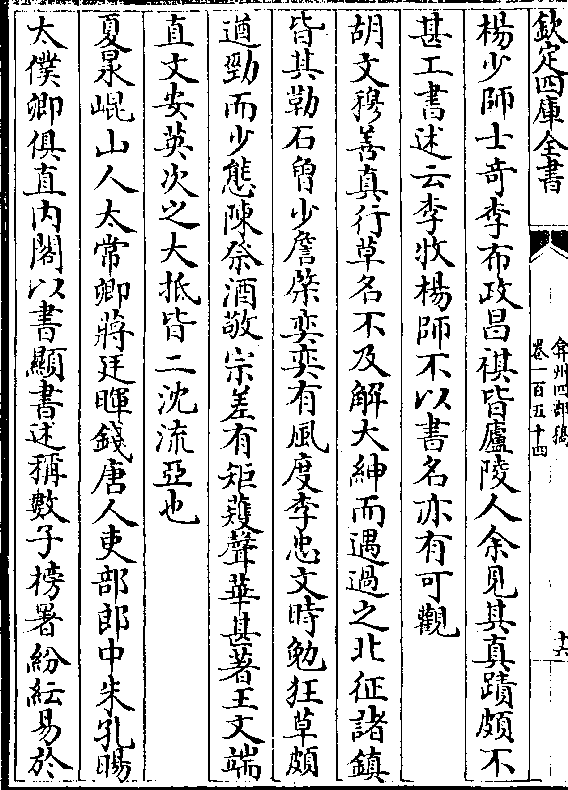 欽定四庫全書
弇州四部稿
卷一百五十四
十六
楊少師士奇李布政昌祺皆廬陵人余見其真蹟頗不
甚工書述云李牧楊師不以書名亦有可觀
胡文穆善真行草名不及解大紳而遇過之北征諸鎮
皆其勒石曾少詹棨奕奕有風度李忠文時勉狂草頗
遒勁而少態陳祭酒敬宗差有矩矱聲華甚著王文端
直文安英次之大抵皆二沈流亞也
夏㫤崐山人太常卿蔣廷暉錢唐人吏部郎中朱孔暘
太僕卿俱直内閣以書顯書述稱數子榜署紛紜易於